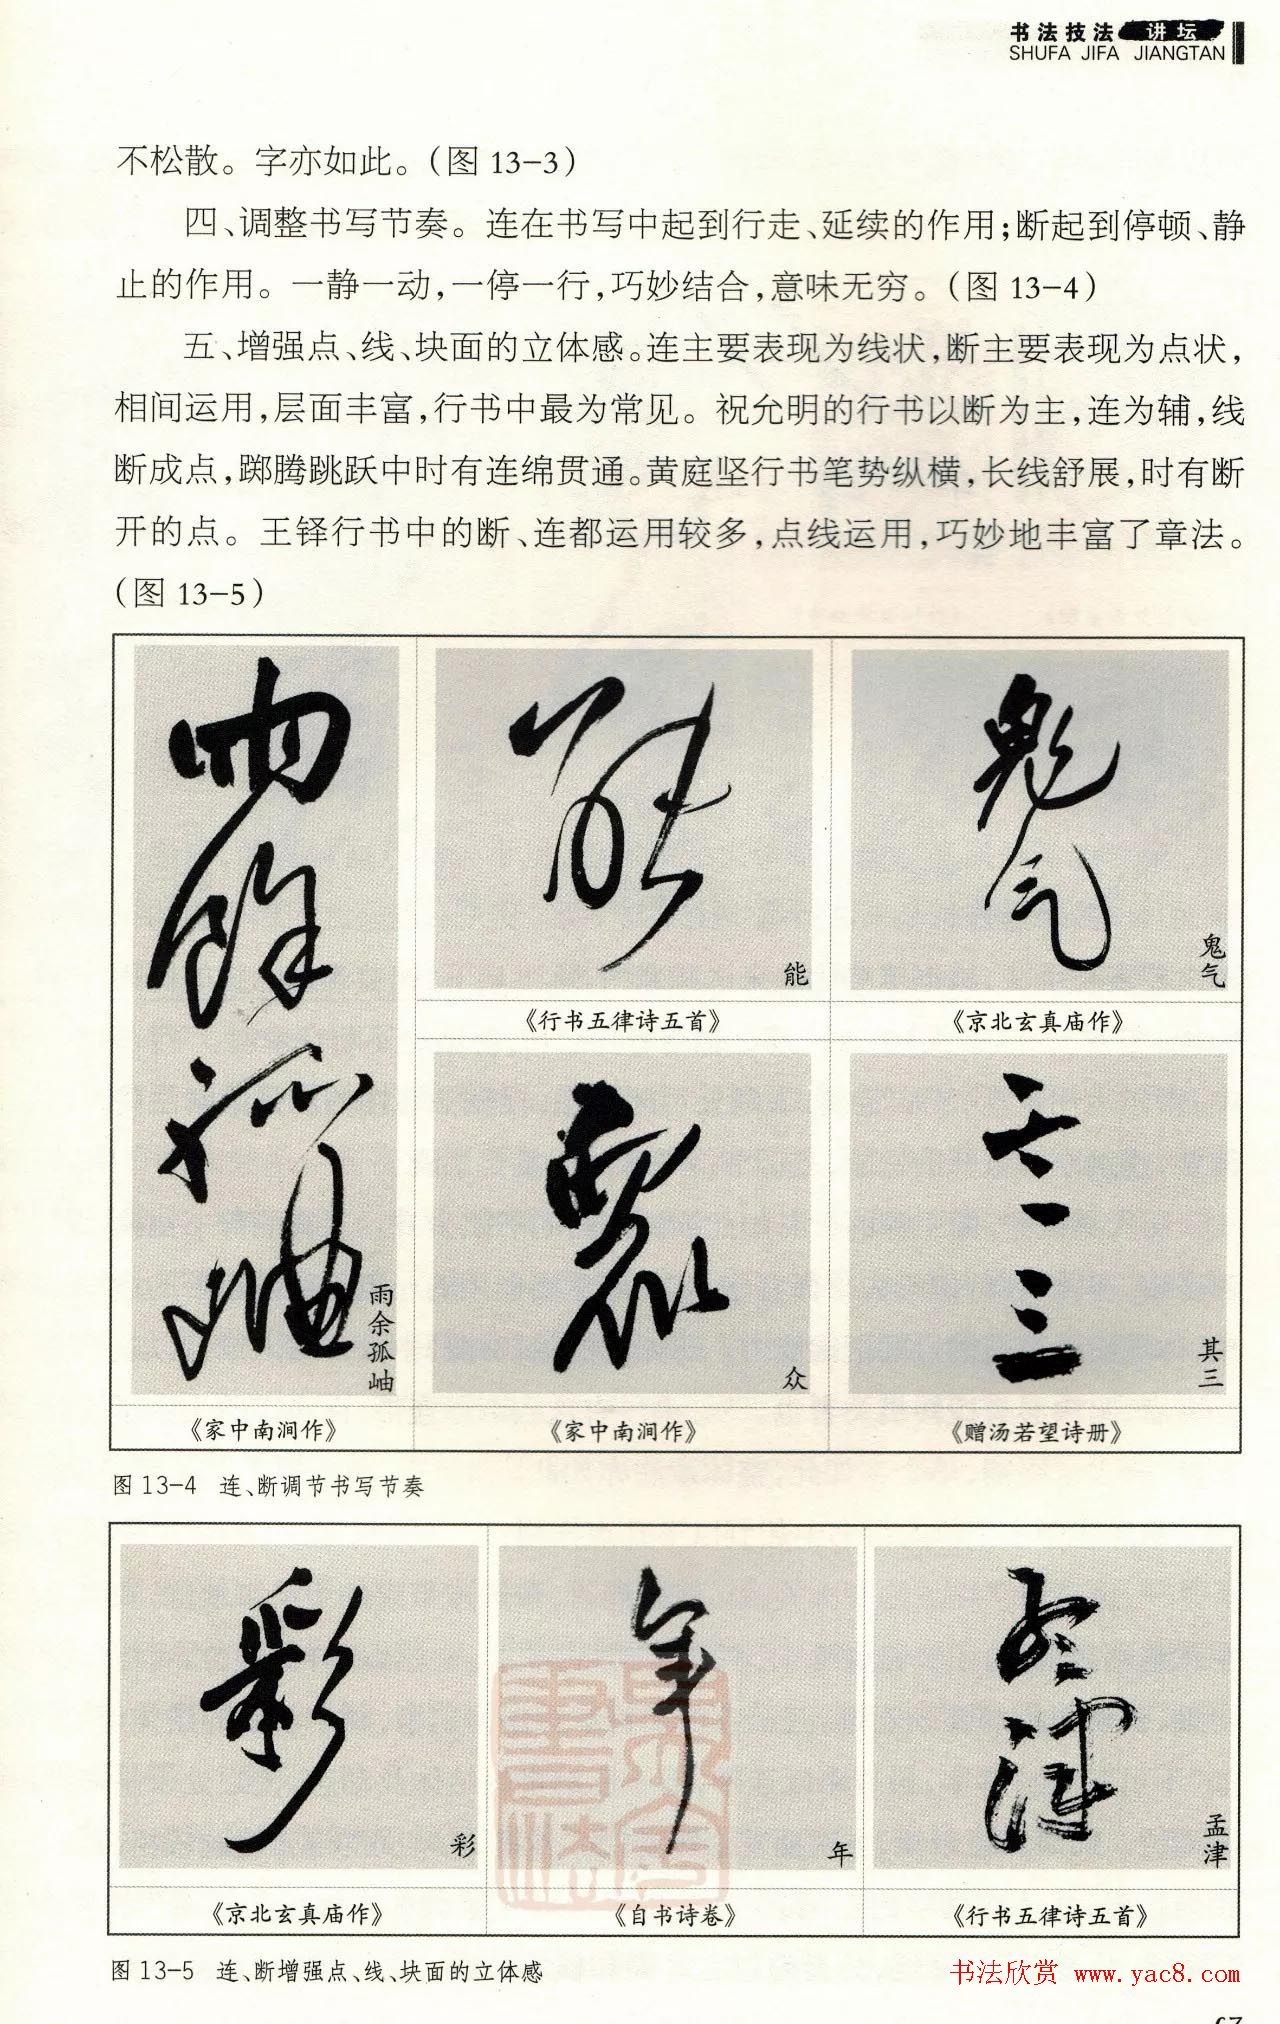 书法技法 讲坛
SHUFA JIFA JIANGTAN
不松散。字亦如此。(图 13-3)
四、调整书写节奏。连在书写中起到行走、延续的作用;断起到停顿、静
止的作用。一静一动,一停一行,巧妙结合,意味无穷。(图 13-4)
五、增强点、线、块面的立体感。连主要表现为线状,断主要表现为点状,
相间运用,层面丰富,行书中最为常见。祝允明的行书以断为主,连为辅,线
断成点,踯腾跳跃中时有连绵贯通。黄庭坚行书笔势纵横,长线舒展,时有断
开的点。王铎行书中的断、连都运用较多,点线运用,巧妙地丰富了章法。
(图 13-5)
雨余孤岫
《家中南涧作》
能
《行书五律诗五首》
鬼气
《京北玄真庙作》
众
《家中南涧作》
其三
《赠汤若望诗册》
图 13-4 连、断调节书写节奏
彩
《京北玄真庙作》
年
《自书诗卷》
孟津
《行书五律诗五首》
图 13-5 连、断增强点、线、块面的立体感
书法欣赏 www.yac8.com
67